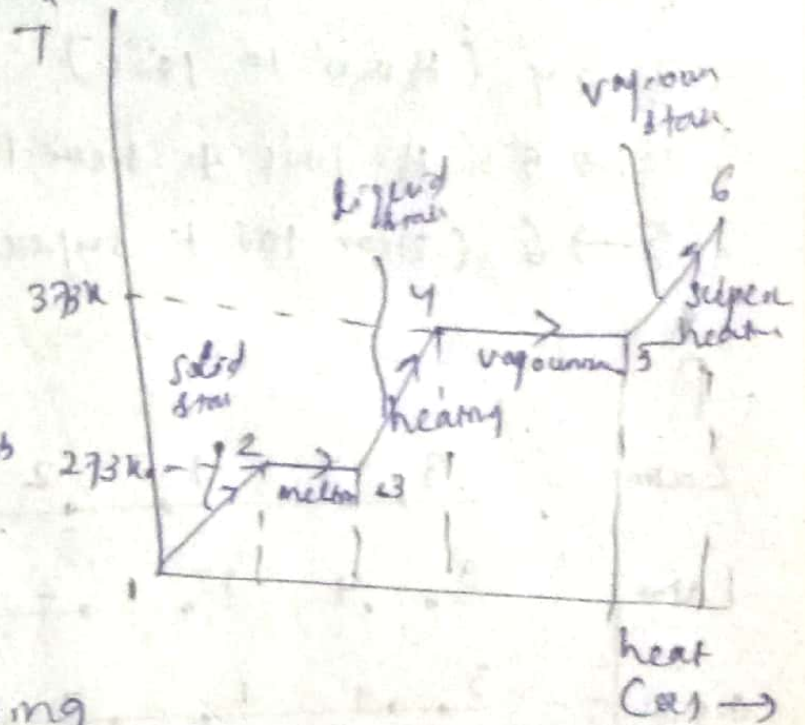 T
vapour
state
6
liquid
state
4
373K
super
heat
solid
state
vapourisn
5
heating
2
273K
melting
3
1
heat
(Q) →
ing